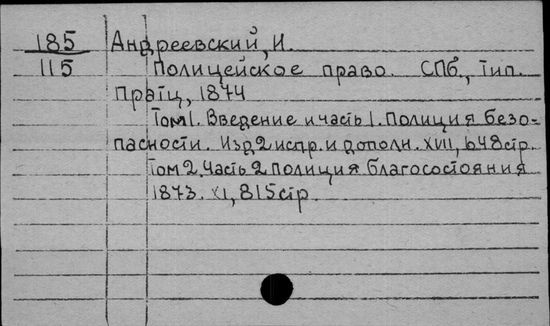 185 Андреевский, И.
115 Полицейское право. СПб., Тип.
Пратц, 1874
Том 1. Введение и часть 1. Полиция безо-
пасности. Изд. 2 испр. и дополн. XVIII, 648 стр.
Том 2. Часть 2 Полиция благосостояния
1873. XI, 815 стр.